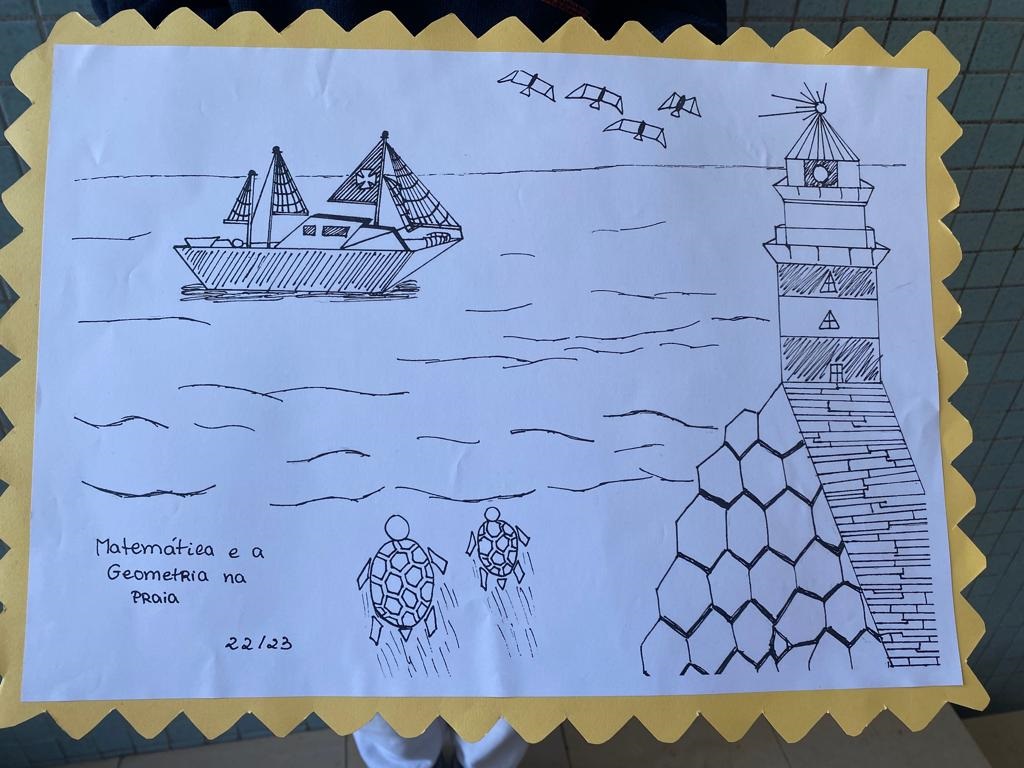 Matemática e a
Geometria na
Praia
22/23